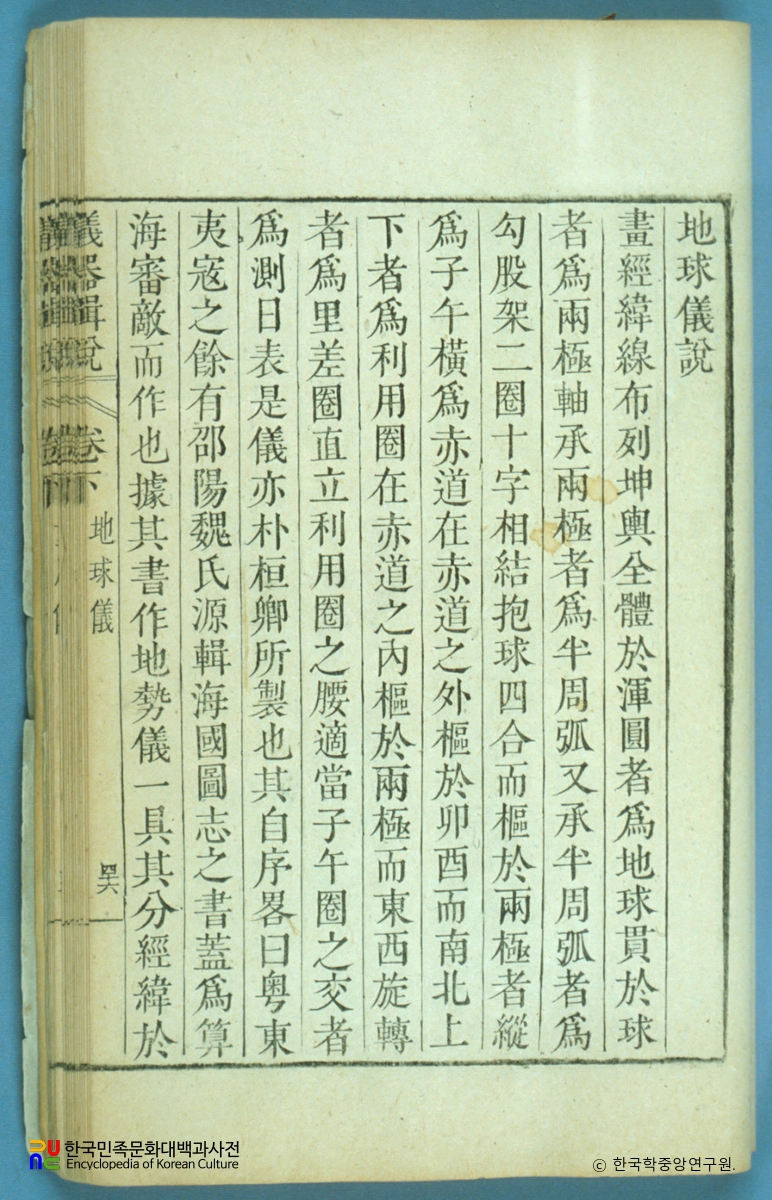 地球儀說
畫經緯線布列坤輿全體於渾圓者爲地球貫於球
者爲兩極軸承兩極者爲半周弧又承半周弧者爲
勾股架二圈十字相結抱球四合而樞於兩極者縱
爲子午橫爲赤道在赤道之外樞於卯酉而南北上
下者爲利用圈在赤道之內樞於兩極而東西旋轉
者爲里差圈直立利用圈之腰適當子午圈之交者
爲測日表是儀亦朴桓卿所製也其自序畧曰粤東
夷寇之餘有邵陽魏氏源輯海國圖志之書蓋爲算
海審敵而作也據其書作地勢儀一具其分經緯於
儀器輯說
卷下
地球儀
四六
한국민족문화대백과사전
Encyclopedia of Korean Culture
© 한국학중앙연구원.